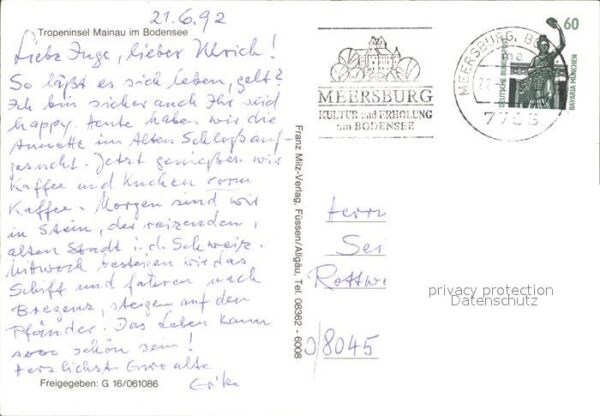 21.6.92
Tropeninsel Mainau im Bodensee
Liebe Inge, lieber Ulrich!
So läßt es sich leben, gelt?
Ich bin sicher auch Ihr seid
happy. Heute haben wir die
Annette im Alten Schloß auf-
gesucht. Jetzt genießen wir
Kaffee und Kuchen vorm
Kaffee. Morgen sind wir
in Stein, der reizenden,
alten Stadt i.d. Schweiz.
Mitwoch besteigen wir das
Schiff und fahren nach
Bregenz, steigen auf den
Pfänder. Das Leben kann
sooo schön sein!
Herzlichst Eure alte
Erika
Freigegeben: G 16/061086
Franz Milz-Verlag, Füssen/Allgäu, Tel. 08362 - 6008
MEERSBURG
KULTUR und ERHOLUNG
am BODENSEE
MEERSBURG, BO
60
DEUTSCHE BUNDESPOST
BAVARIA MÜNCHEN
Herrn
Rottw
privacy protection
Datenschutz
D/8045